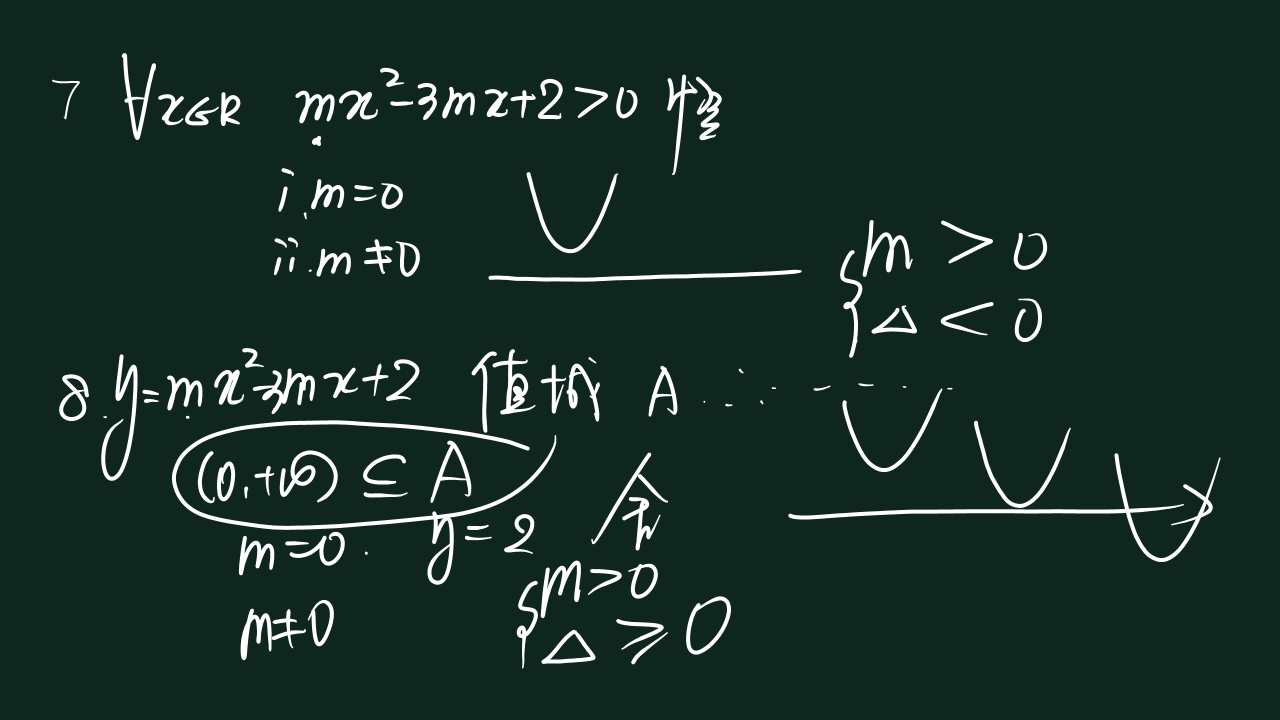 7 ∀x∈R mx²-3mx+2>0 恒
i. m=0
ii. m≠0
{m>0
Δ<0
8. y=mx²-3mx+2 值域 A
(0,+∞)⊆A
m=0. y=2 舍
m≠0 {m>0
Δ≥0